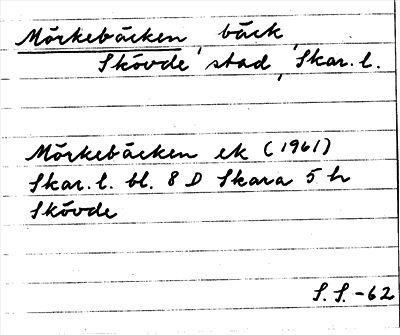 Mörkebäcken bäck
Skövde stad, Skar. l.
Mörkebäcken ek (1961)
Skar. l. bl. 8 D Skara 5 h
Skövde
S. S. -62